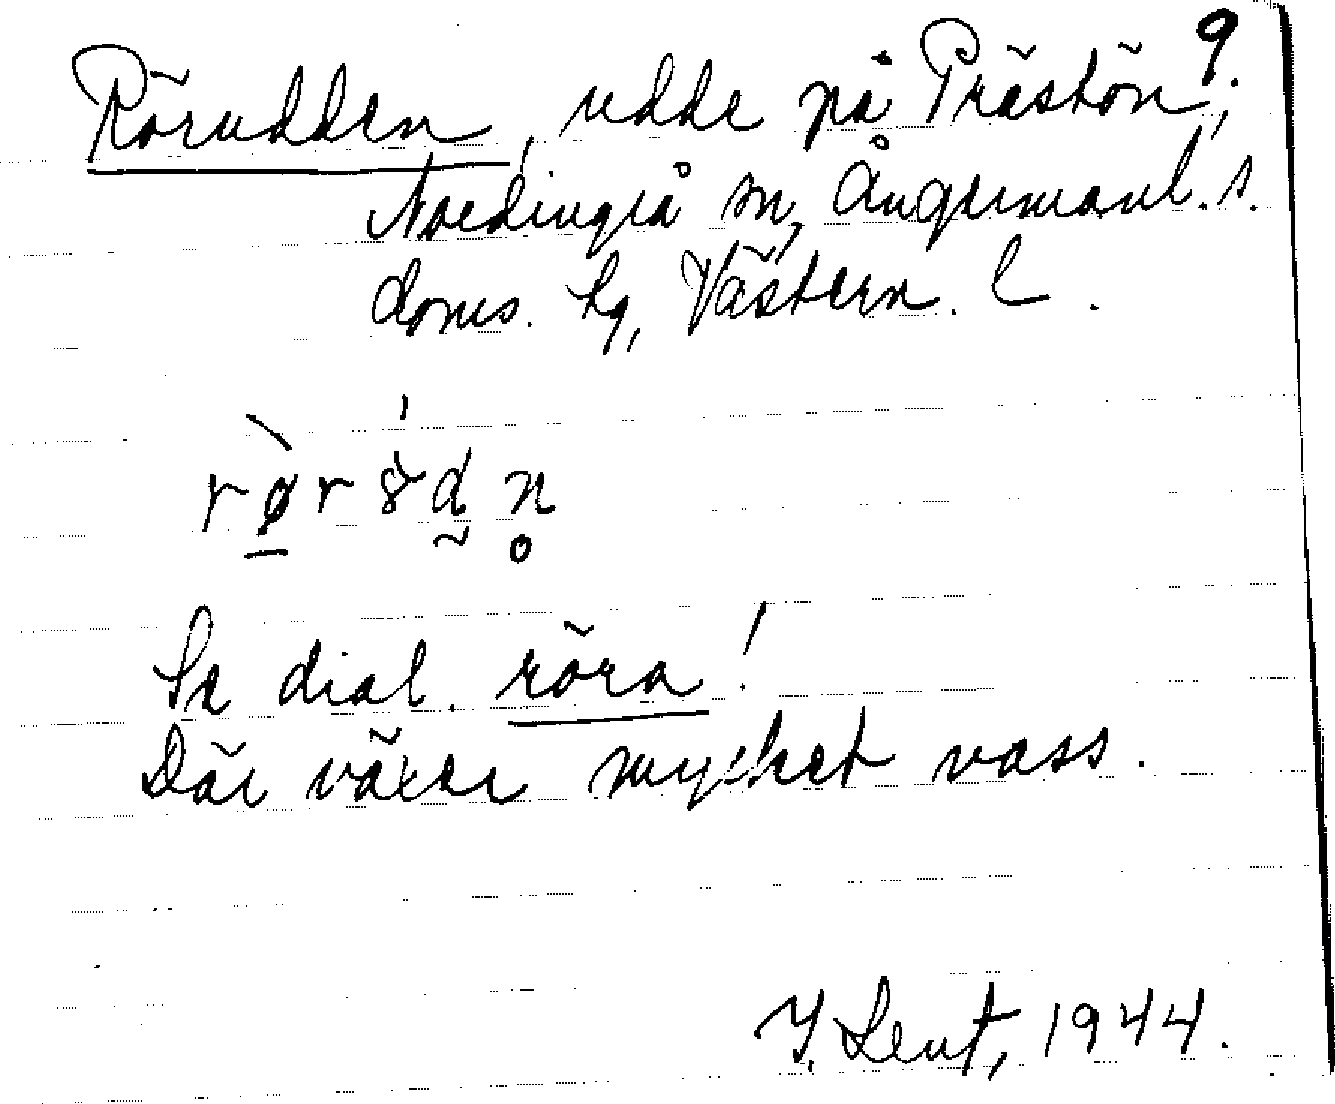 9.
Rörudden, udde på Prästön,
Nordingrå sn, Ångermanl. s.
doms. hg, Västern. l.
Se dial. röra!
Där växer mycket vass.
Y. Lent, 1944.